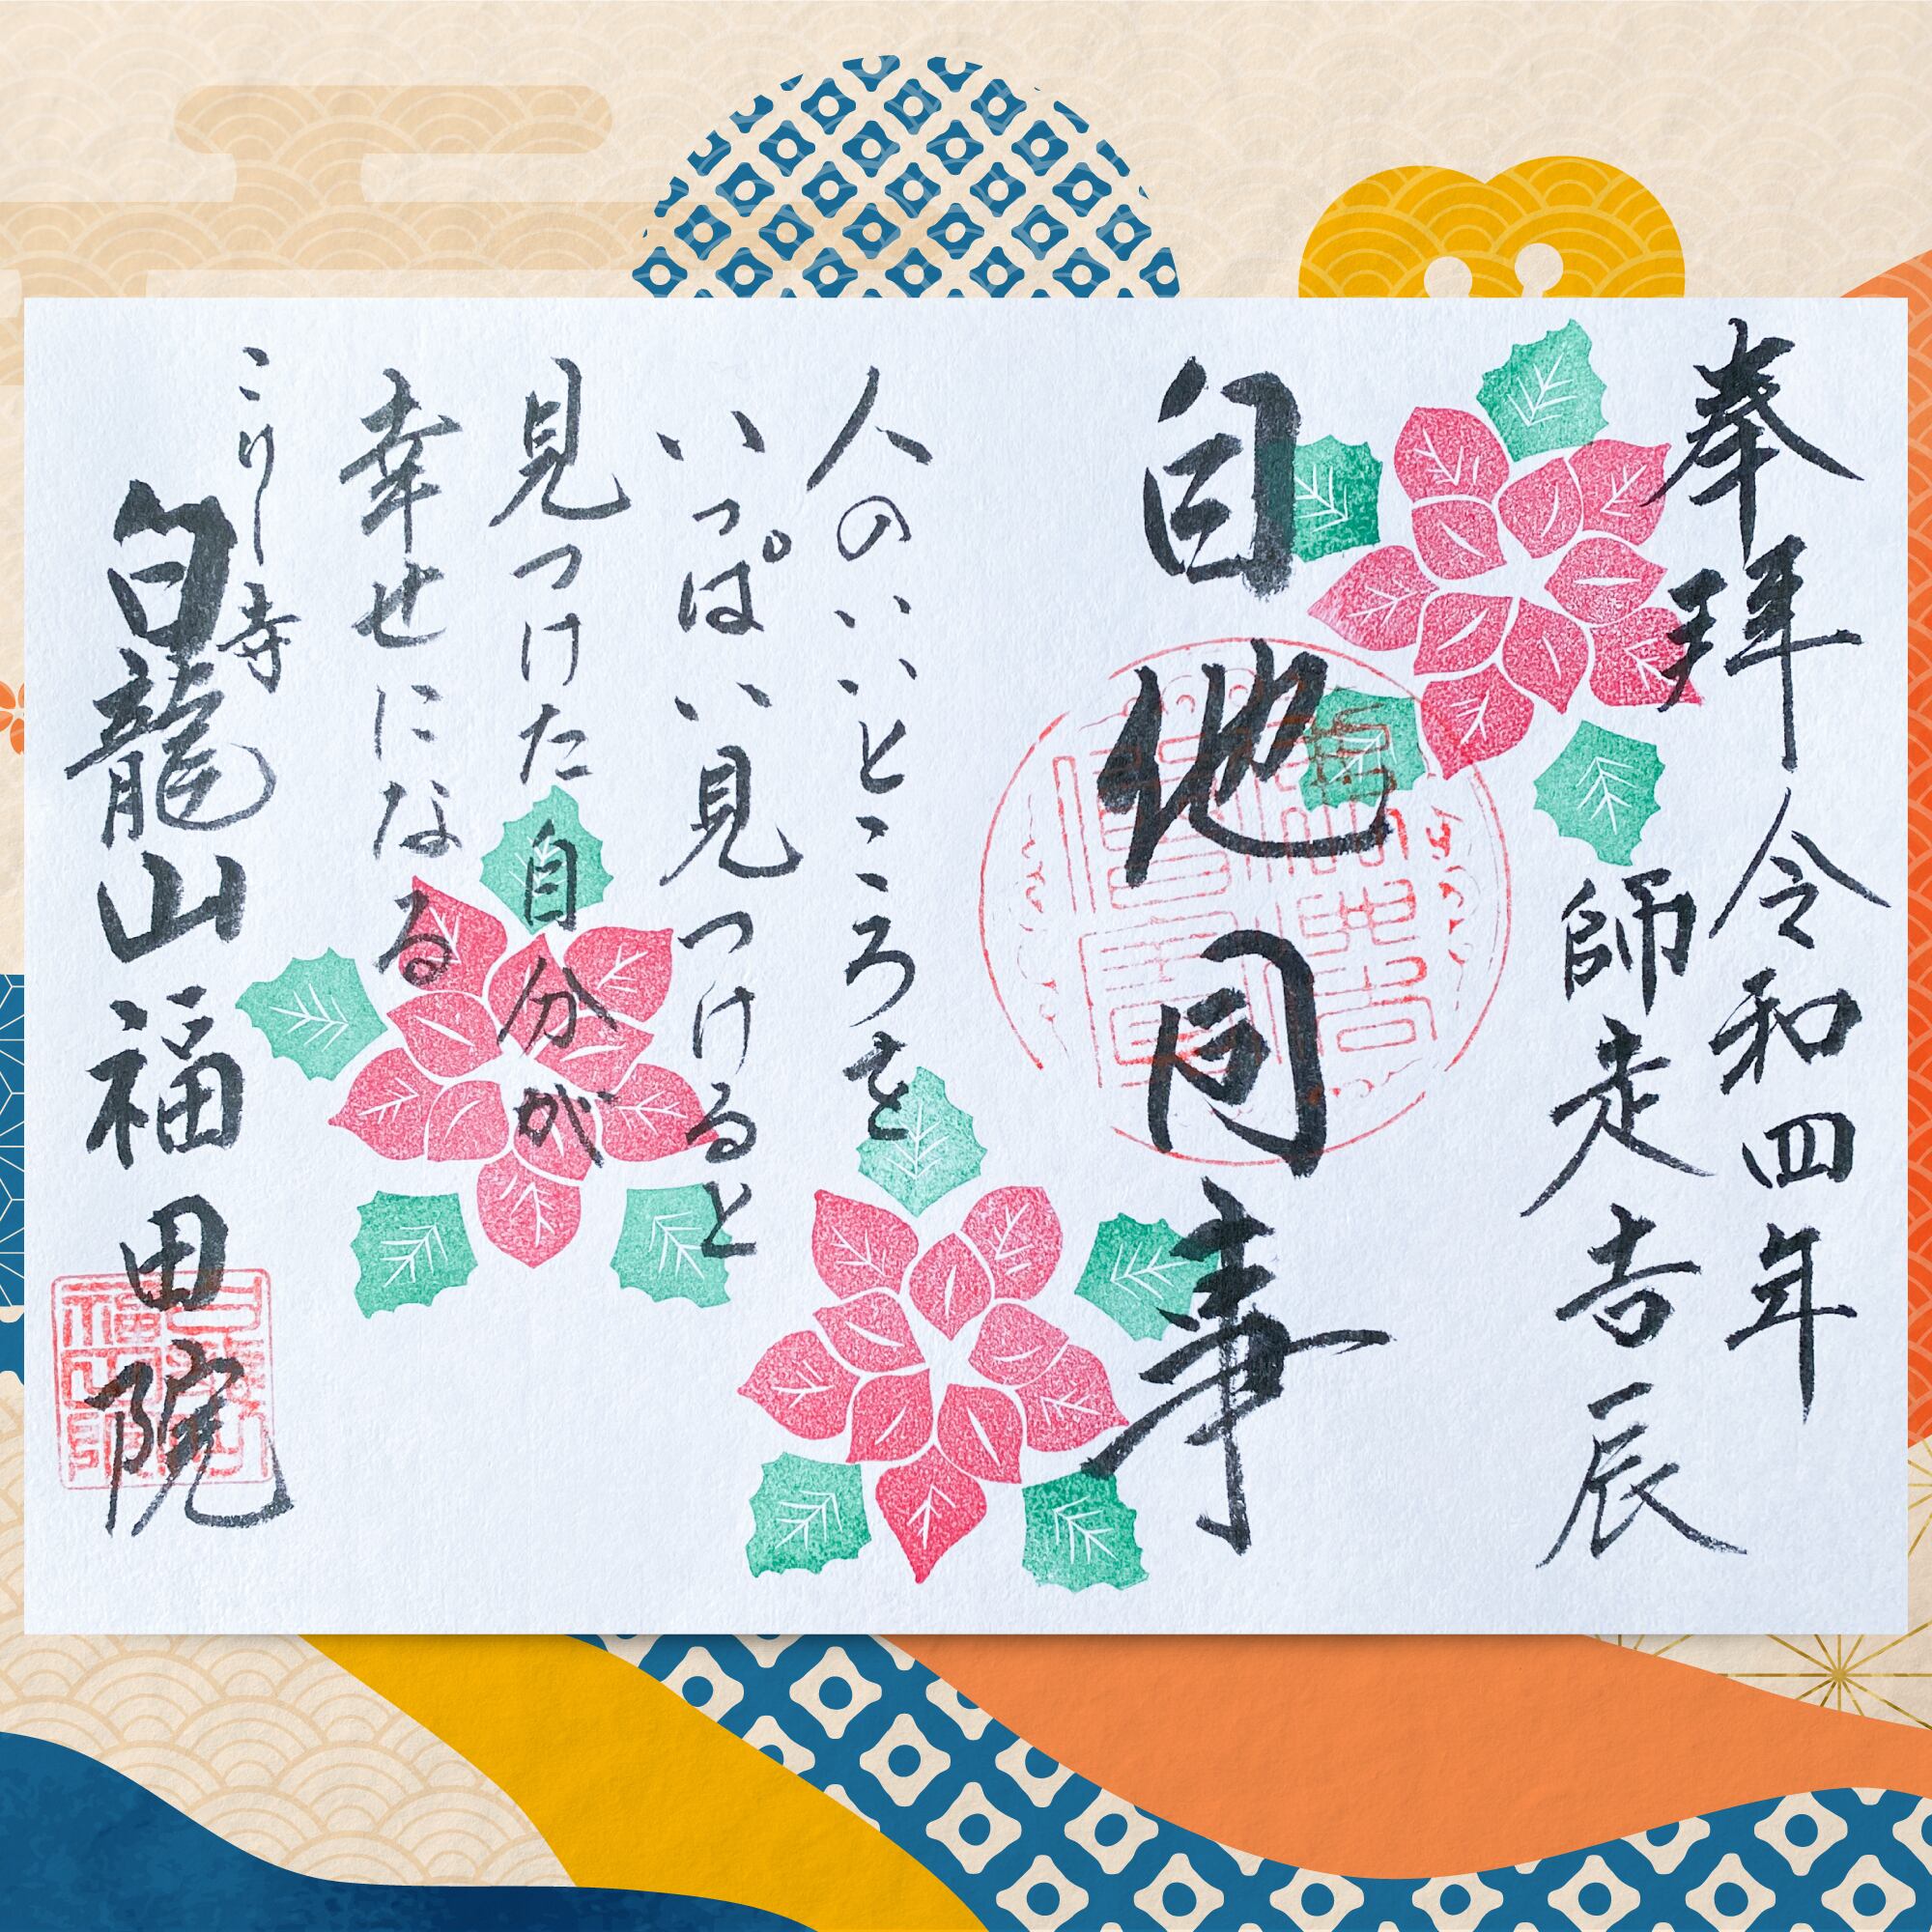 奉拝 令和四年
師走吉辰
自他同事
人のいいところを
いっぱい見つけると
見つけた自分が
幸せになる
こりし寺
白龍山福田院